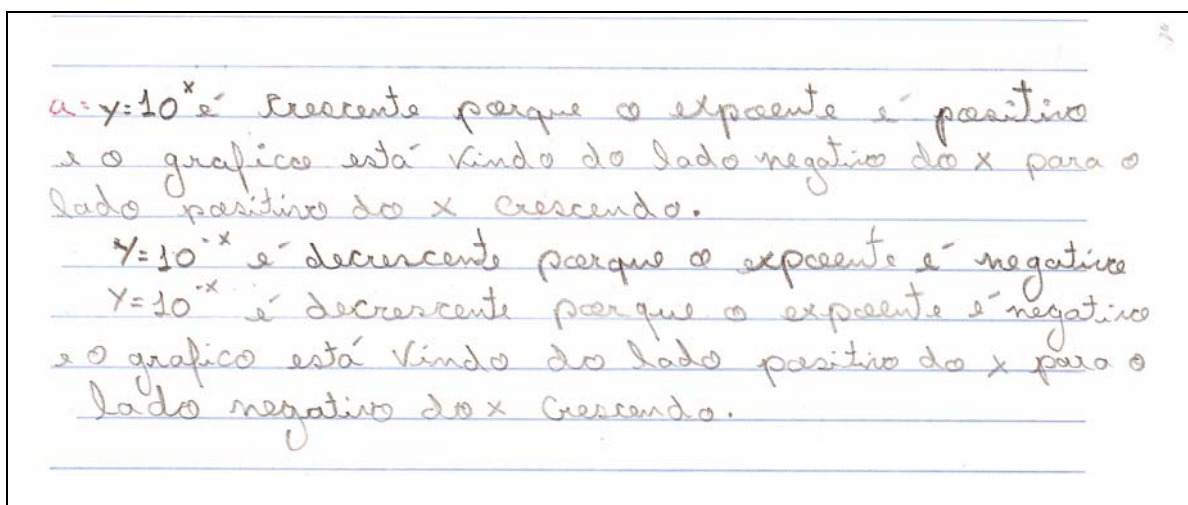 a= y=10^x é crescente porque o expoente é positivo
e o grafico está vindo do lado negativo do x para o
lado positivo do x crescendo.
y=10^-x é decrescente porque o expoente é negativo
y=10^-x é decrescente porque o expoente é negativo
e o grafico está vindo do lado positivo do x para o
lado negativo do x crescendo.